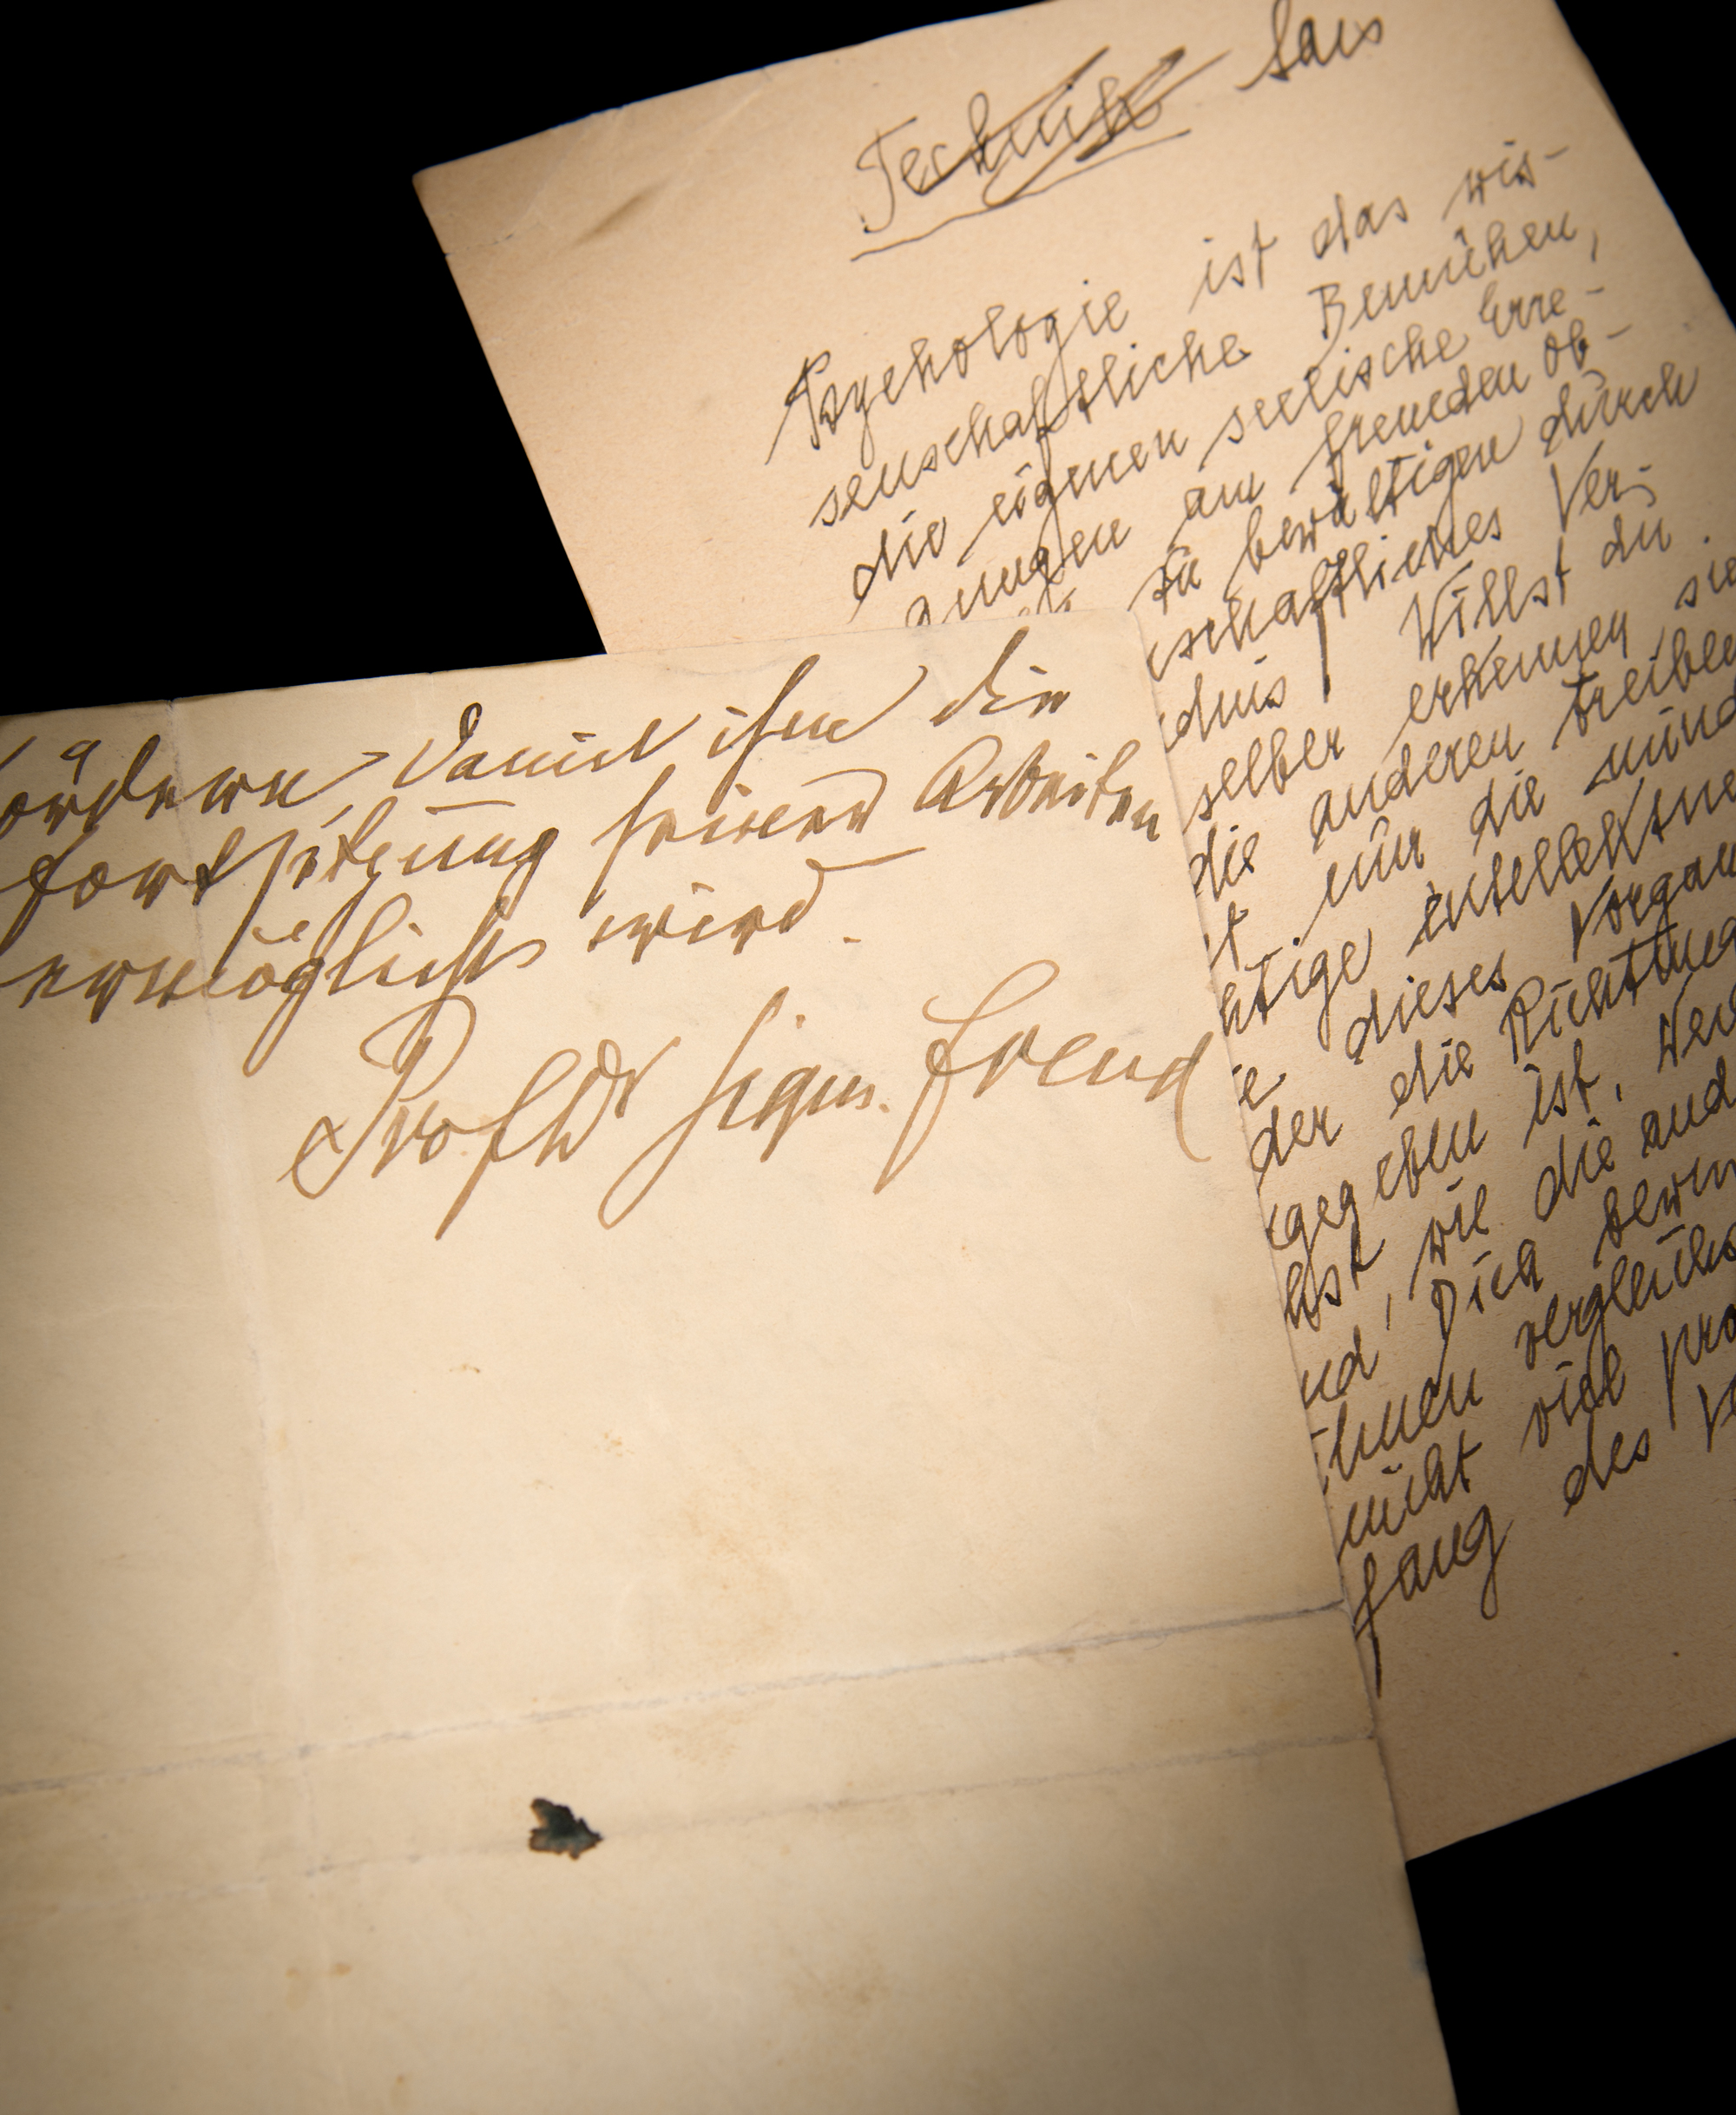 Technik Sais
Psychologie ist das wis-
senschaftliche Bemühen,
die eigenen seelische Erre-
gungen am fremden Ob-
zu bewältigen durch
schaftliches Ver-
dnis Willst du
selber erkennen, sie
die anderen treiben
t nur die
htige intellektue
e dieses Vorgan
der die Richtung
gegeben ist. Wen
hst, wie die and
nd, Dich bewu
ihnen vergleichs
nicht viel pro
fang des V
fördern, damit ihm die
Fortsetzung seiner Arbeiten
ermöglicht wird.
Prof Dr Sigm. Freud